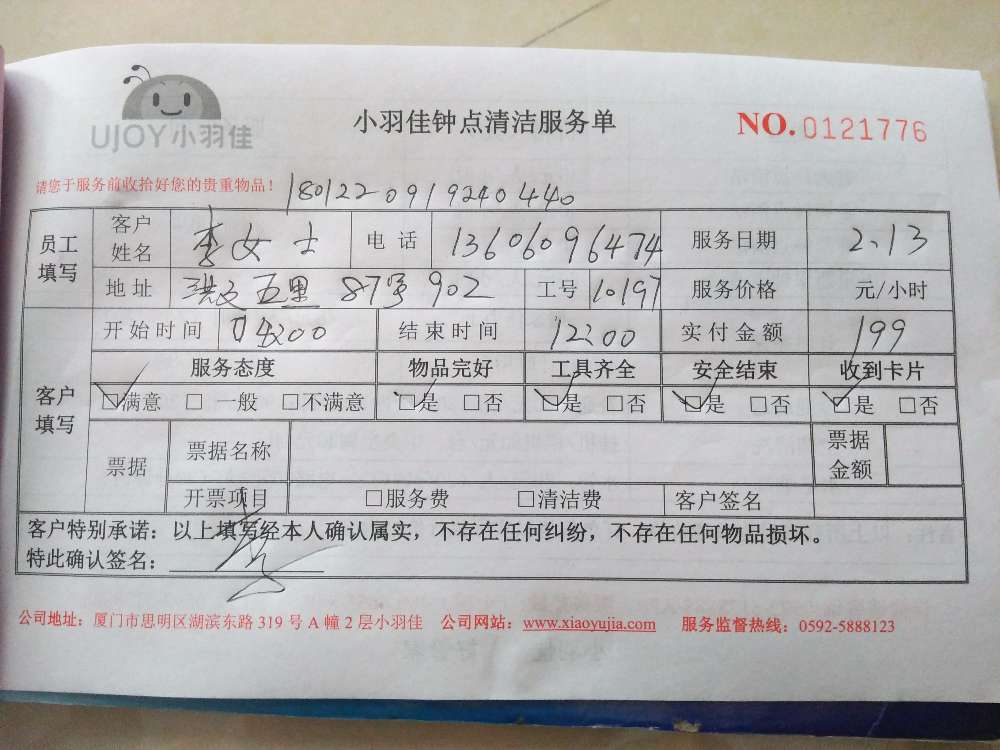 UJOY小羽佳
小羽佳钟点清洁服务单
NO.0121776
请您于服务前收拾好您的贵重物品！
180122091924 0440
员工填写 客户姓名 李女士 电话 13606096474 服务日期 2.13
地址 洪文五里 87号 902 工号 10197 服务价格 元/小时
客户填写 开始时间 200 结束时间 1200 实付金额 199
服务态度 物品完好 工具齐全 安全结束 收到卡片
☑满意 □一般 □不满意 ☑是 □否 ☑是 □否 ☑是 □否 ☑是 □否
票据 票据名称 票据金额
开票项目 □服务费 □清洁费 客户签名
客户特别承诺：以上填写经本人确认属实，不存在任何纠纷，不存在任何物品损坏。
特此确认签名：
公司地址：厦门市思明区湖滨东路 319 号 A 幢 2 层小羽佳 公司网站：www.xiaoyujia.com 服务监督热线：0592-5888123